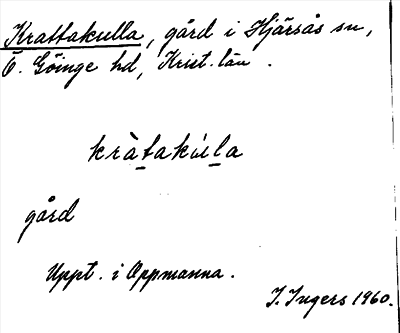 Krattakulla, gård i Hjärsås sn,
Ö. Göinge hd, Krist. län.
kràtakúla
gård
Uppt. i Oppmanna.
I. Ingers 1960.